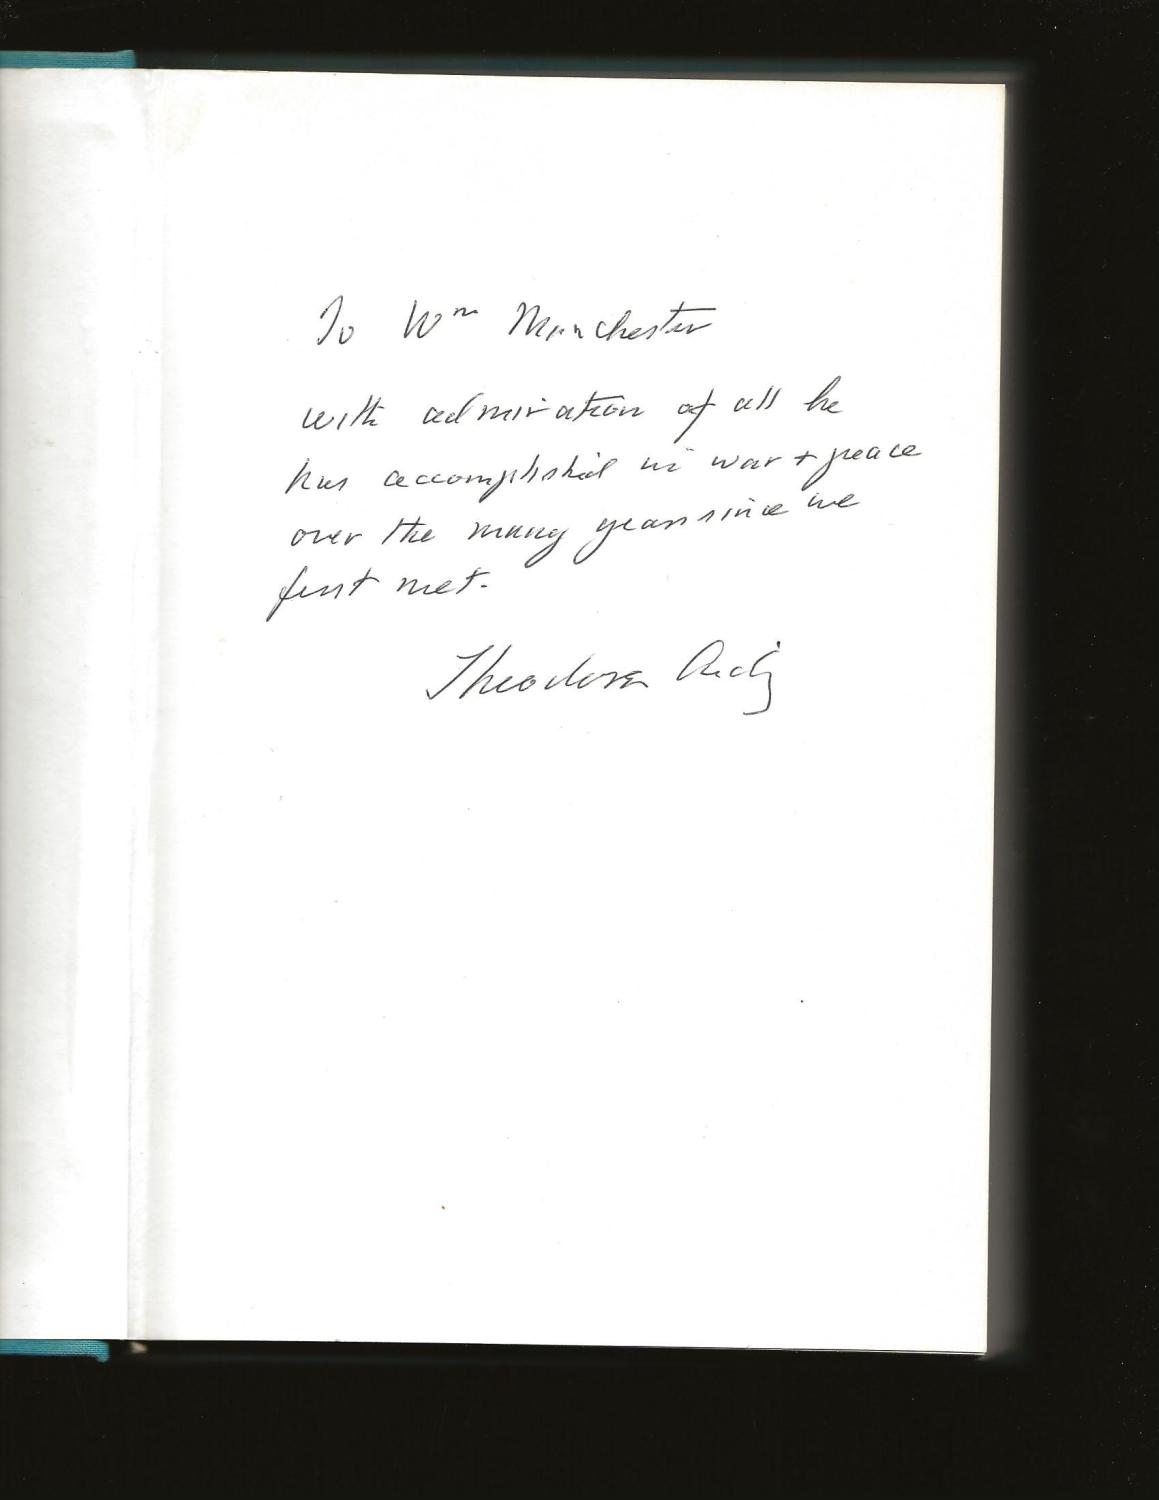 To Wm Manchester
with admiration of all he
has accomplished in war + peace
over the many years since we
first met.
Theodora